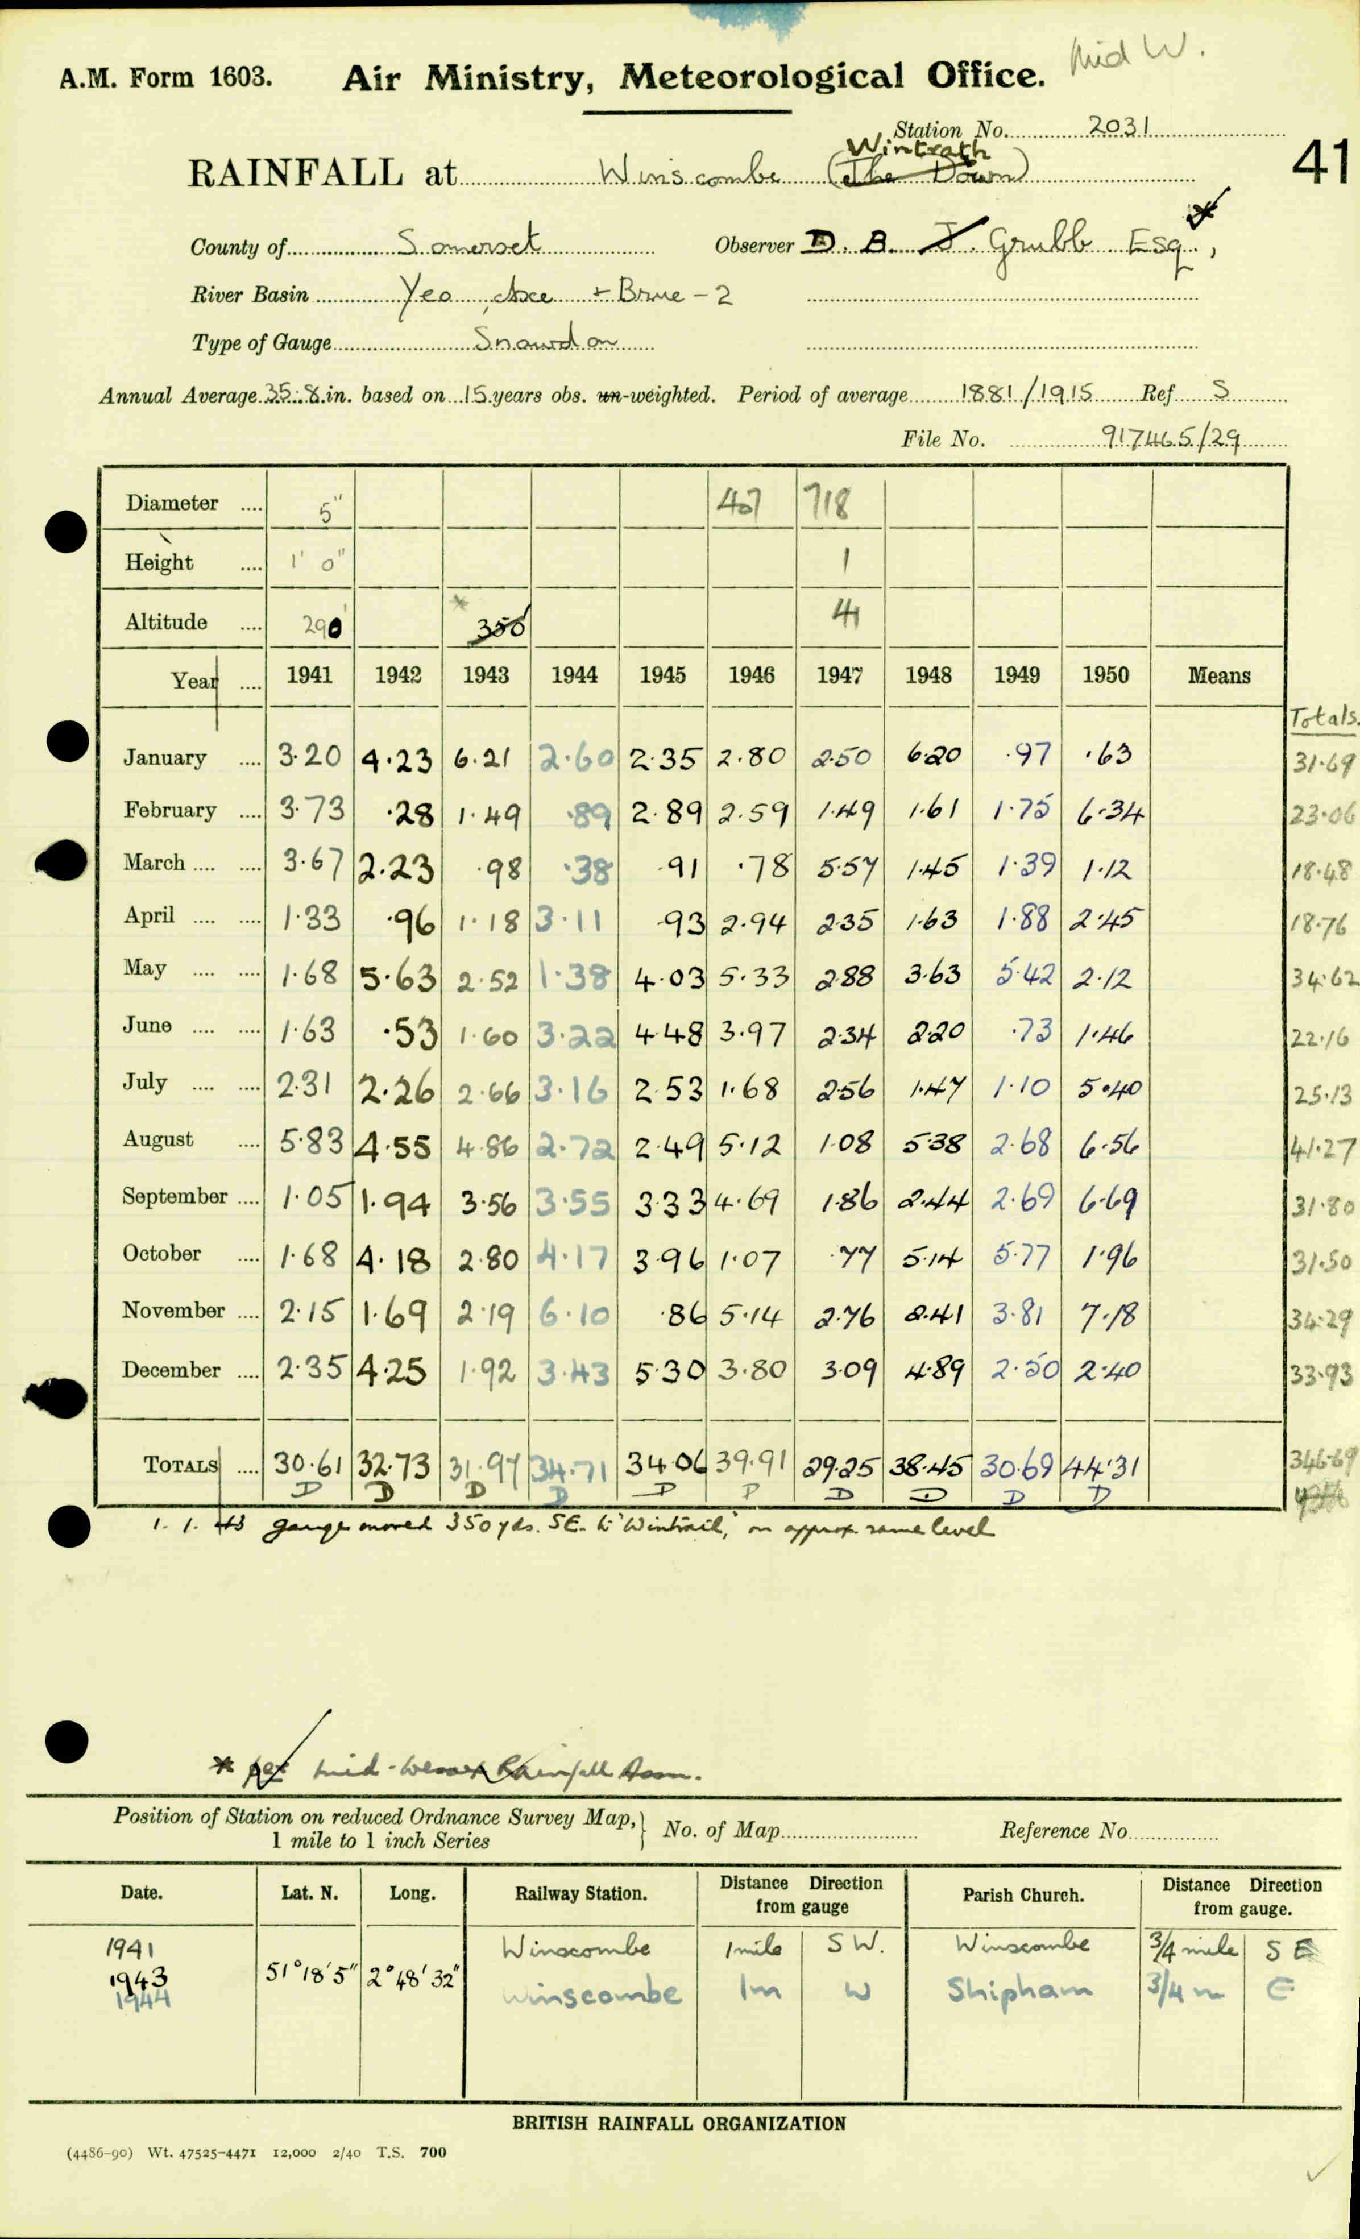 Mid W.
A.M. Form 1603. Air Ministry, Meteorological Office.
Station No. 2031
Wintrath
RAINFALL at Winscombe (The Down)
41
County of Somerset Observer D. B. J. Grubb Esq, *
River Basin Yeo, Axe + Brue - 2
Type of Gauge Snowdon
Annual Average 35.8 in. based on 15 years obs. un-weighted. Period of average 1881/1915 Ref S
File No. 917465/29
Diameter .... 5" 407 718
Height .... 1' 0" 1
Altitude .... 290' * 350' 41
Year .... 1941 1942 1943 1944 1945 1946 1947 1948 1949 1950 Means
Totals.
January .... 3.20 4.23 6.21 2.60 2.35 2.80 2.50 6.20 .97 .63 31.69
February .... 3.73 .28 1.49 .89 2.89 2.59 1.49 1.61 1.75 6.34 23.06
March .... .... 3.67 2.23 .98 .38 .91 .78 5.57 1.45 1.39 1.12 18.48
April .... .... 1.33 .96 1.18 3.11 .93 2.94 2.35 1.63 1.88 2.45 18.76
May .... .... 1.68 5.63 2.52 1.38 4.03 5.33 2.88 3.63 5.42 2.12 34.62
June .... .... 1.63 .53 1.60 3.22 4.48 3.97 2.34 2.20 .73 1.46 22.16
July .... .... 2.31 2.26 2.66 3.16 2.53 1.68 2.56 1.47 1.10 5.40 25.13
August .... 5.83 4.55 4.86 2.72 2.49 5.12 1.08 5.38 2.68 6.56 41.27
September .... 1.05 1.94 3.56 3.55 3.33 4.69 1.86 2.44 2.69 6.69 31.80
October .... 1.68 4.18 2.80 4.17 3.96 1.07 .77 5.14 5.77 1.96 31.50
November .... 2.15 1.69 2.19 6.10 .86 5.14 2.76 2.41 3.81 7.18 34.29
December .... 2.35 4.25 1.92 3.43 5.30 3.80 3.09 4.89 2.50 2.40 33.93
TOTALS .... 30.61 32.73 31.97 34.71 34.06 39.91 29.25 38.45 30.69 44.31 346.69
D D D D D P D D D D
1. 1. 43 gauge moved 350 yds. SE. to 'Wintrail,' on approx same level
* per Mid-Wessex Rainfall Assn.
Position of Station on reduced Ordnance Survey Map, } No. of Map Reference No
1 mile to 1 inch Series
Date. Lat. N. Long. Railway Station. Distance Direction from gauge Parish Church. Distance Direction from gauge.
1941 Winscombe 1 mile S W. Winscombe 3/4 mile S E
1943 51° 18' 5" 2° 48' 32"
1944 Winscombe 1m W Shipham 3/4 m E
BRITISH RAINFALL ORGANIZATION
(4486-90) Wt. 47525-4471 12,000 2/40 T.S. 700